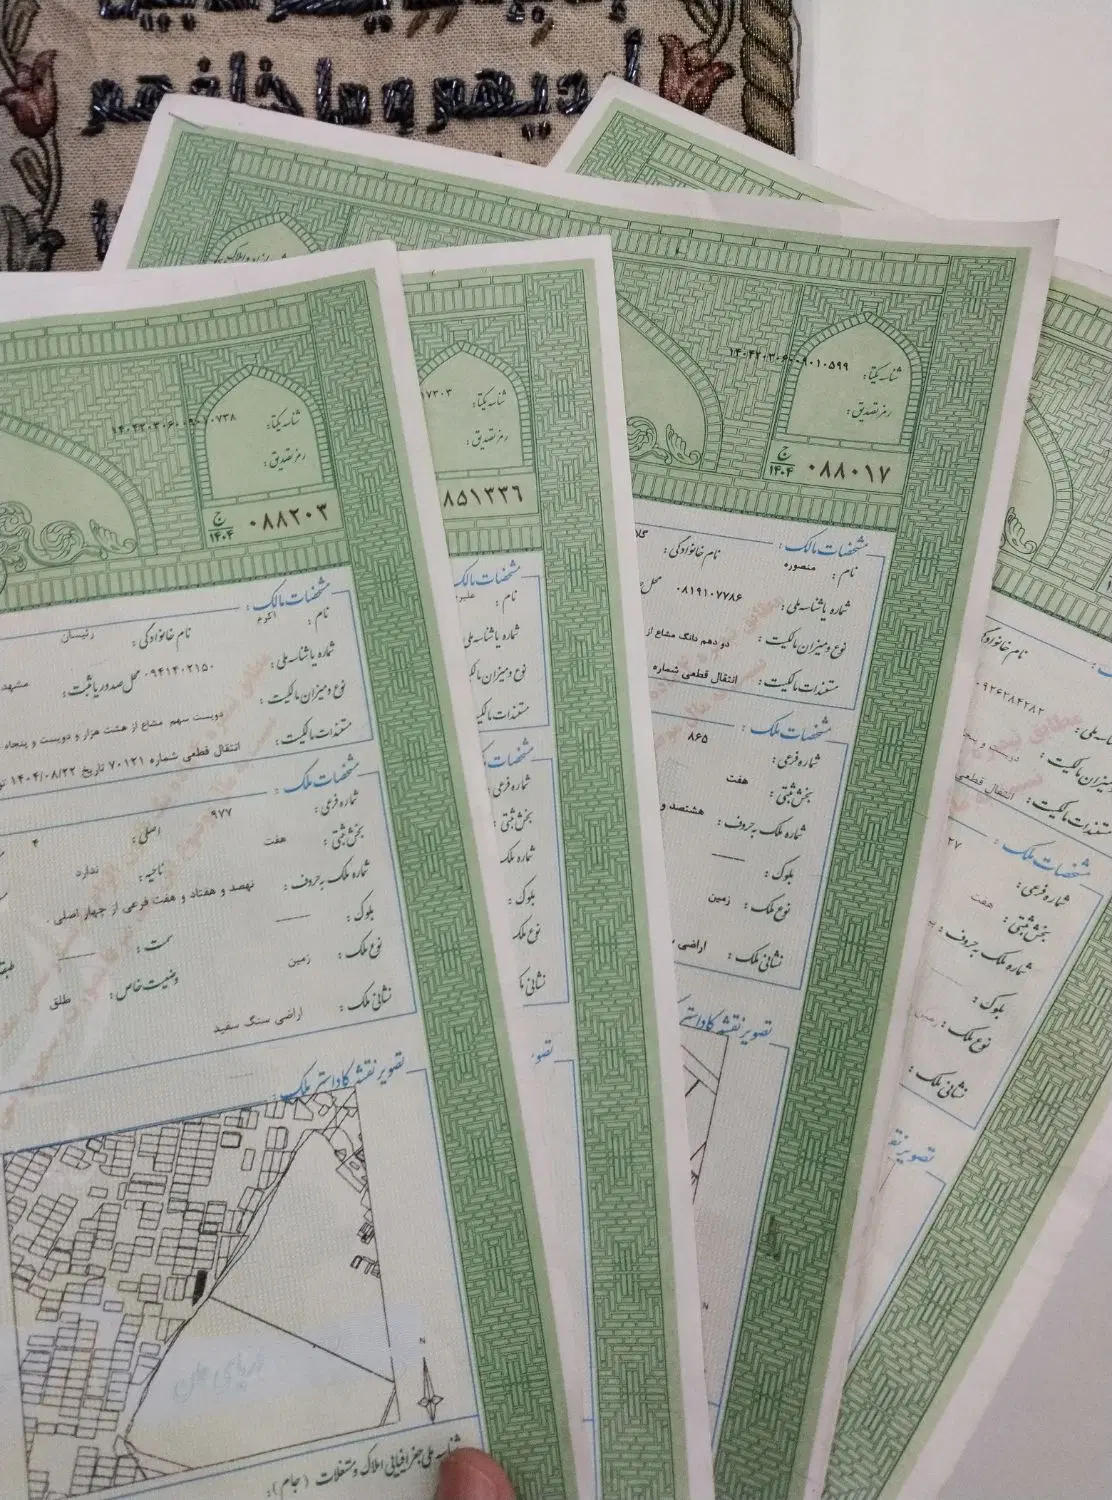 ادیهم و ما خلفهم
شناسه یکتا: ۱۴۰۴۲۰۳۰۶۰۰۹۰۱۰۷۳۸
رمز تصدیق:
ج
۱۴۰۴
۰۸۸۲۰۳
مشخصات مالک:
نام: اکرم نام خانوادگی: رئیسان
شماره یا شناسه ملی: ۰۹۴۱۴۰۲۱۵۰ محل صدور یا ثبت: مشهد
نوع و میزان مالکیت: دویست سهم مشاع از هشت هزار و دویست و پنجاه
مستندات مالکیت: انتقال قطعی شماره ۷۰۱۲۱ تاریخ ۱۴۰۴/۰۸/۲۲
مشخصات ملک:
شماره فرعی: ۹۷۷ اصلی: ۴
بخش ثبتی: هفت ناحیه: ندارد
شماره ملک به حروف: نهصد و هفتاد و هفت فرعی از چهار اصلی .
بلوک: —— سمت: ——
نوع ملک: زمین وضعیت خاص: طلق
نشانی ملک: اراضی سنگ سفید
تصویر نقشه کاداستر ملک:
دریای عمان
N
شناسه ملی جغرافیایی املاک و مستغلات (جام):
شناسه یکتا: ۱۷۳۰۳
رمز تصدیق:
۸۵۱۳۳۶
مشخصات مالک
نام: علیر
شماره یا شناسه ملی:
نوع و میزان مالکیت
مستندات مالکیت
مشخصات ملک
شماره فرعی
بخش ثبتی:
شماره ملک
بلوک:
نوع ملک
نشانی ملک
تصو
شناسه یکتا: ۱۴۰۴۲۰۳۰۶۰۰۹۰۱۰۵۹۹
رمز تصدیق:
ج
۱۴۰۴
۰۸۸۰۱۷
مشخصات مالک:
نام: منصوره نام خانوادگی: گلا
شماره یا شناسه ملی: ۰۸۱۹۱۰۷۷۸۶ محل
نوع و میزان مالکیت: دو دهم دانگ مشاع از
مستندات مالکیت: انتقال قطعی شماره
مشخصات ملک
شماره فرعی: ۸۶۵
بخش ثبتی: هفت
شماره ملک به حروف: هشتصد و
بلوک: ——
نوع ملک: زمین
نشانی ملک: اراضی
تصویر نقشه کاداستر
N
نام خانوادگی
۰۹۲۶۲۸۴۲۸۲
نوع و میزان مالکیت: دویست و پنجاه
مستندات مالکیت: انتقال قطعی
مشخصات ملک:
شماره فرعی: ۲۷
بخش ثبتی: هفت
شماره ملک به حروف:
بلوک:
نوع ملک: زمین
نشانی ملک:
تصویر نق